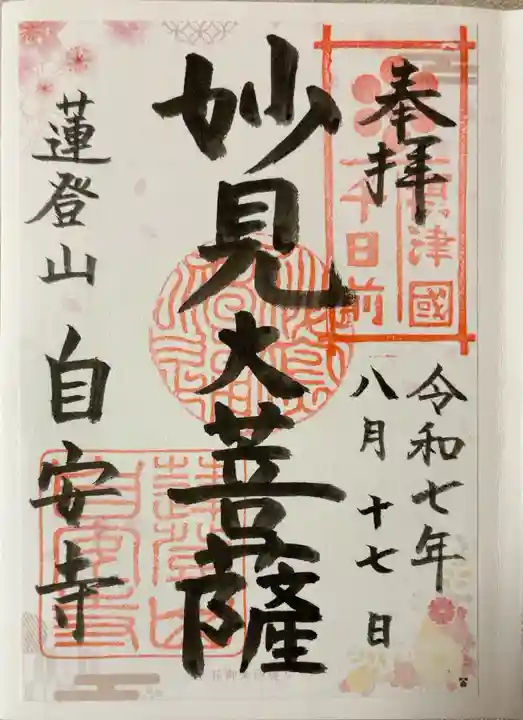 奉拝
摂津國
千日前
令和七年
八月十七日
妙見大菩薩
蓮登山
自安寺